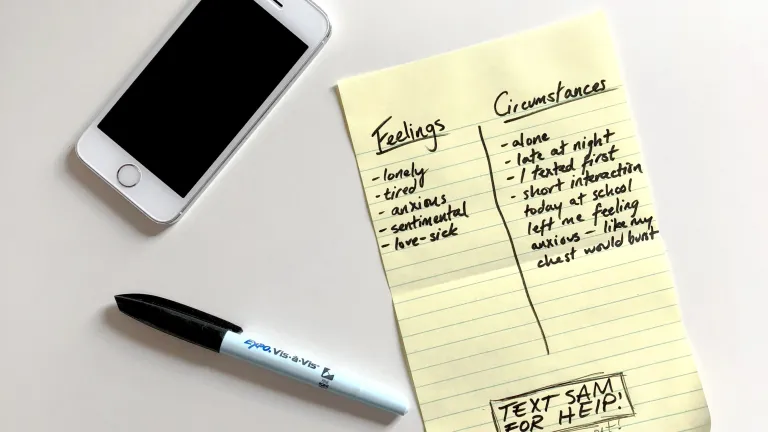 Feelings
- lonely
- tired
- anxious
- sentimental
- love-sick
Circumstances
- alone
- late at night
- I texted first
- short interaction
today at school
left me feeling
anxious - like my
chest would burst
TEXT SAM
FOR HELP!
EXPO. Vis-à-Vis